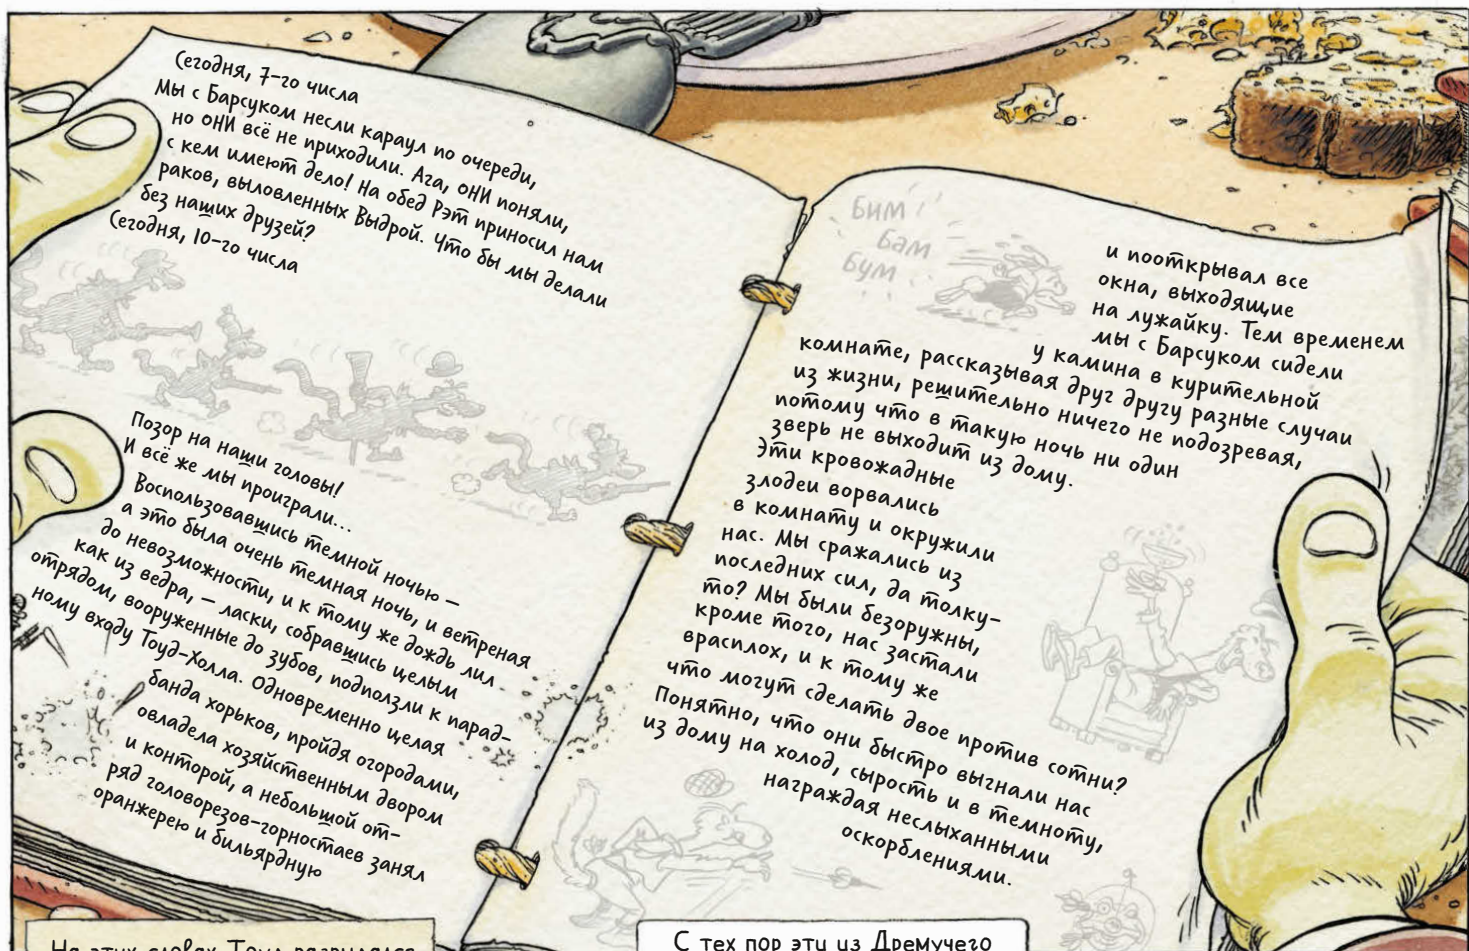 Сегодня, 7-го числа
Мы с Барсуком несли караул по очереди,
но ОНИ всё не приходили. Ага, ОНИ поняли,
с кем имеют дело! На обед Рэт приносил нам
раков, выловленных Выдрой. Что бы мы делали
без наших друзей?
Сегодня, 10-го числа
Позор на наши головы!
И всё же мы проиграли...
Воспользовавшись темной ночью –
а это была очень темная ночь, и ветреная
до невозможности, и к тому же дождь лил
как из ведра, – ласки, собравшись целым
отрядом, вооруженные до зубов, подползли к парад-
ному входу Тоуд-Холла. Одновременно целая
банда хорьков, пройдя огородами,
овладела хозяйственным двором
и конторой, а небольшой от-
ряд головорезов-горностаев занял
оранжерею и бильярдную
Бим!
Бам
Бум
и пооткрывал все
окна, выходящие
на лужайку. Тем временем
мы с Барсуком сидели
у камина в курительной
комнате, рассказывая друг другу разные случаи
из жизни, решительно ничего не подозревая,
потому что в такую ночь ни один
зверь не выходит из дому.
Эти кровожадные
злодеи ворвались
в комнату и окружили
нас. Мы сражались из
последних сил, да толку-
то? Мы были безоружны,
кроме того, нас застали
врасплох, и к тому же
что могут сделать двое против сотни?
Понятно, что они быстро выгнали нас
из дому на холод, сырость и в темноту,
награждая неслыханными
оскорблениями.
На этих словах Тоуд разрыдался
С тех пор эти из Дремучего